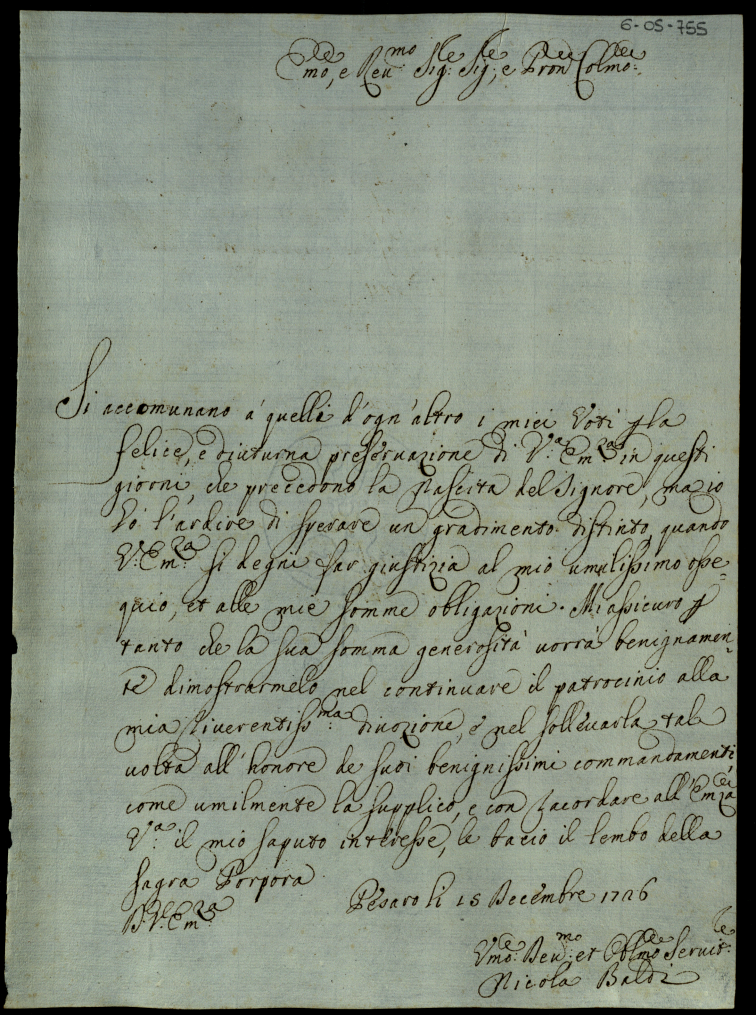 6-05-755
Emo, e Reumo Sig: Sig:, e Pron Colmo:
Si accomunano a' quelli d'ogn'altro i miei Voti p la
felice, e diuturna preseruazione di V.a Em.za in questi
giorni, che precedono la Nascita del Signore, ma io
hò l'ardire di sperare un gradimento distinto, quando
V. Em.za si degni far giustizia al mio umilissimo osse=
quio, et alle mie somme obligazioni. Mi assicuro p
tanto che la sua somma generosità uorrà benignamen=
te dimostrarmelo nel continuare il patrocinio alla
mia riuerentiss.ma diuozione, e nel solleuarla tal
uolta all'honore de suoi benignissimi commandamenti,
come umilmente la supplico, e con racordare all'Em.za
V.a il mio saputo interesse, le bacio il lembo della
sagra Porpora
D. V. Em.za
Pesaro li 15 Decembre 1726
Vmo: Deu.mo et Obl.mo Seruit.re
Nicola Baldi